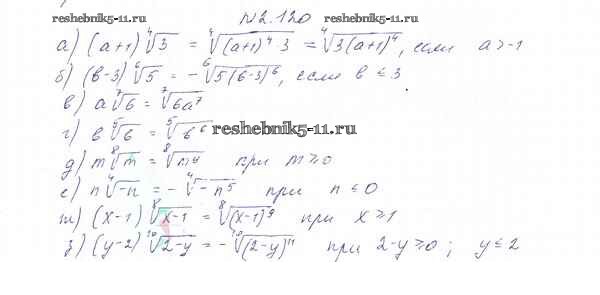 №2.120
reshebnik5-11.ru reshebnik5-11.ru
а) (a+1) ⁴√3 = ⁴√((a+1)⁴·3) = ⁴√(3(a+1)⁴), если a>-1
б) (b-3) ⁶√5 = - ⁶√(5(b-3)⁶), если b ≤ 3
в) a ⁷√6 = ⁷√(6a⁷)
г) b ⁵√b = ⁵√(b⁶)
reshebnik5-11.ru
д) m ⁸√m = ⁸√(m⁹) при m≥0
е) n ⁴√(-n) = - ⁴√(-n⁵) при n ≤ 0
ж) (x-1) ⁸√(x-1) = ⁸√((x-1)⁹) при x≥1
з) (y-2) ¹⁰√(2-y) = - ¹⁰√((2-y)¹¹) при 2-y≥0; y≤2